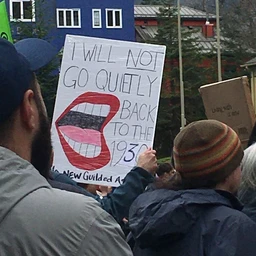 I WILL NOT
GO QUIETLY
BACK
TO THE
1930
NEW Guilded A